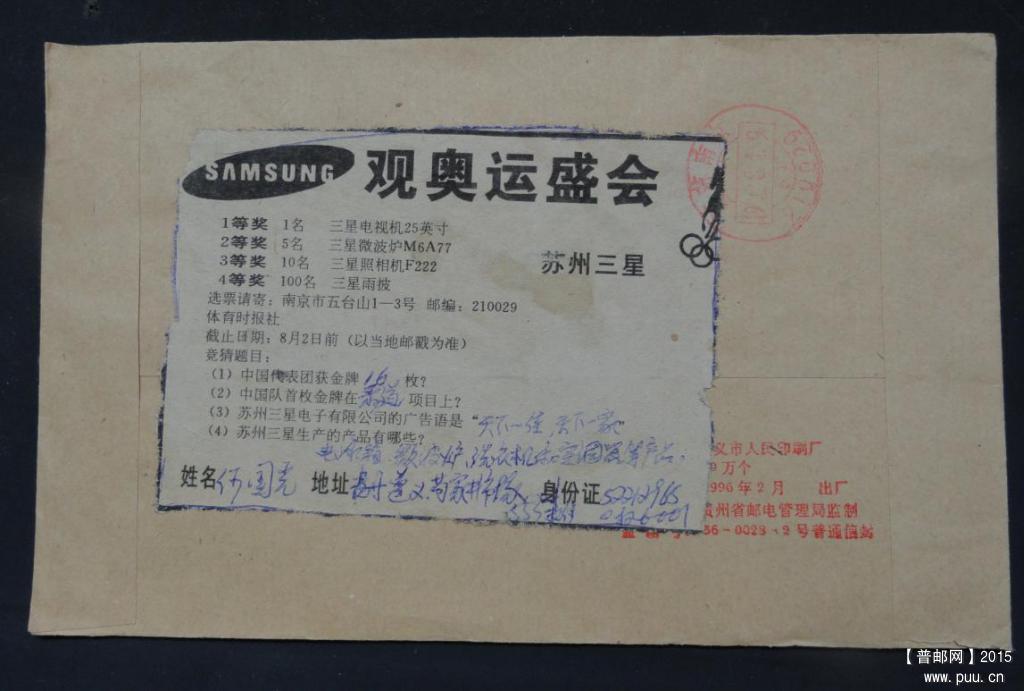 SAMSUNG 观奥运盛会
1等奖 1名 三星电视机25英寸
2等奖 5名 三星微波炉M6A77
3等奖 10名 三星照相机F222
4等奖 100名 三星雨披
苏州三星
选票请寄：南京市五台山1—3号 邮编：210029
体育时报社
截止日期：8月2日前（以当地邮戳为准）
竞猜题目：
(1) 中国代表团获金牌 16 枚？
(2) 中国队首枚金牌在 柔道 项目上？
(3) 苏州三星电子有限公司的广告语是“天下一佳 天下一家
(4) 苏州三星生产的产品有哪些？
电冰箱
姓名 何国光 地址 身份证
义市人民印刷厂
9万个
1996年2月 出厂
贵州省邮电管理局监制
56-0023-2号普通信封
【普邮网】2015
www.puu.cn